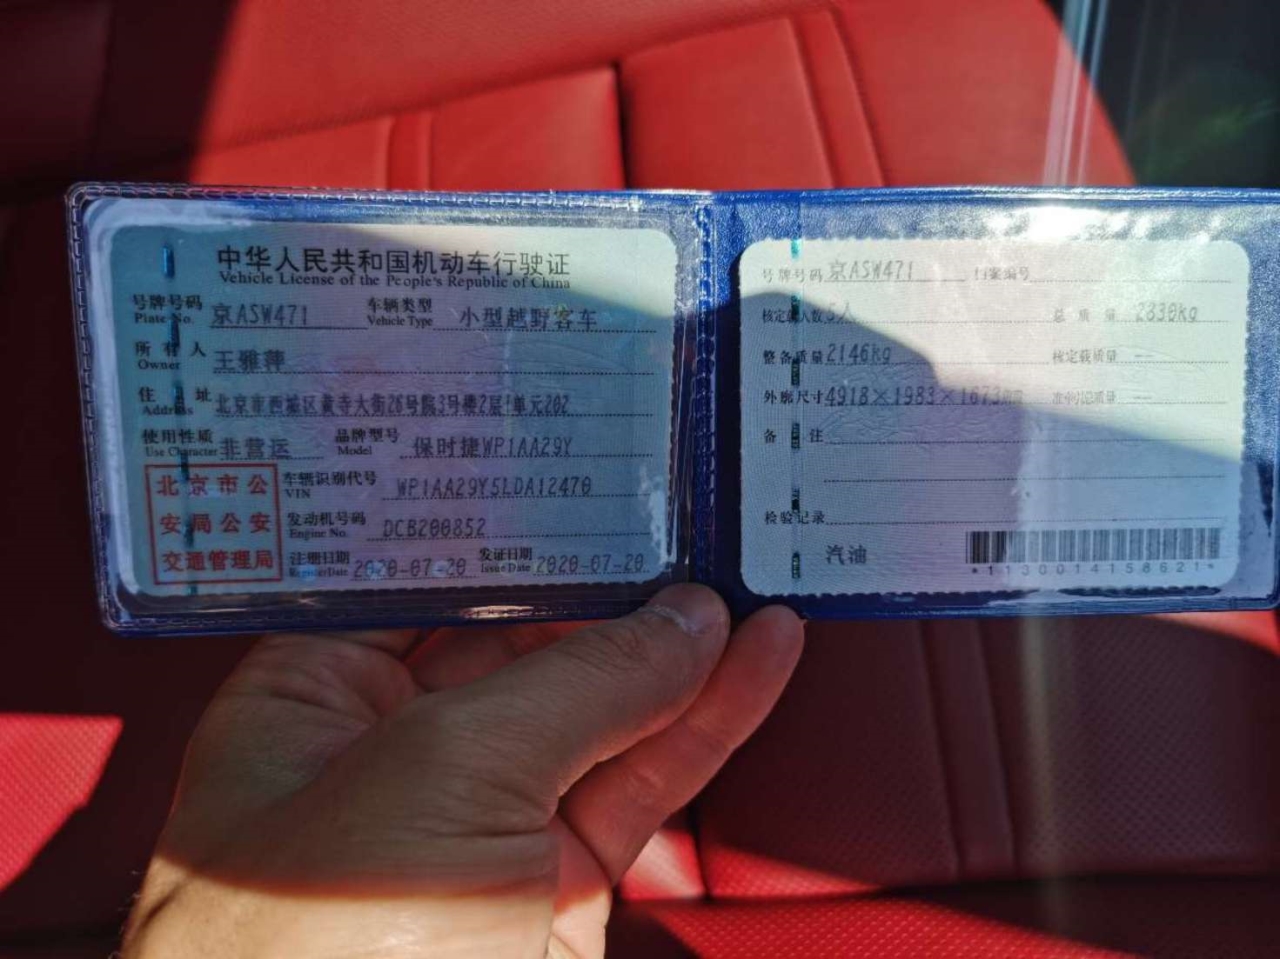 中华人民共和国机动车行驶证
Vehicle License of the People's Republic of China
号牌号码 京ASW471 车辆类型 小型越野客车
Plate No. Vehicle Type
所有人 王雅萍
Owner
住址 北京市西城区黄寺大街26号院3号楼2层1单元202
Address
使用性质 非营运 品牌型号 保时捷WP1AA29Y
Use Character Model
北京市公
安局公安
交通管理局
车辆识别代号 WP1AA29Y5LDA12470
VIN
发动机号码 DCB200852
Engine No.
注册日期 2020-07-20 发证日期 2020-07-20
Register Date Issue Date
号牌号码 京ASW471 档案编号
核定载人数 5人 总质量 2830kg
整备质量 2146kg 核定载质量 --
外廓尺寸 4918×1983×1673 准牵引总质量 --
备注
检验记录
汽油
*1130014158621*